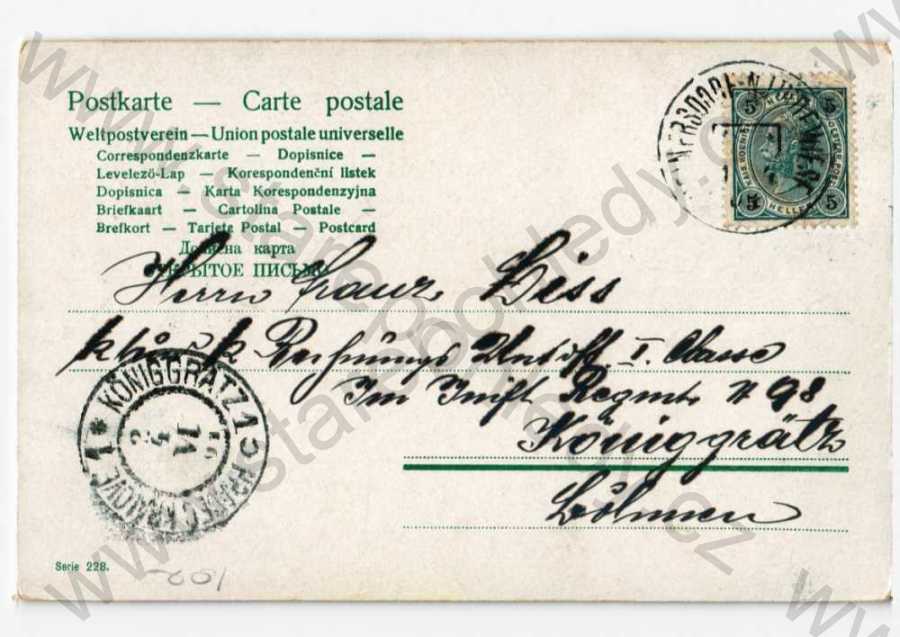 Postkarte — Carte postale
Weltpostverein — Union postale universelle
Correspondenzkarte — Dopisnice —
Levelező-Lap — Korespondenční listek
Dopisnica — Karta Korespondenzyjna
Briefkaart — Cartolina Postale —
Brefkort — Tarjeta Postal — Postcard
Дописна карта
ОТКРЫТОЕ ПИСЬМО
5 5
5 5
HELLER
Herrn Franz Ziss
k und k Rechnungs Untoff I. Classe
Im Inift Regmt N 98
Königgrätz
Böhmen
KÖNIGGRÄTZ 1
HRADEC KRÁLOVÉ 1
Serie 228.
www.stare-pohledy.cz